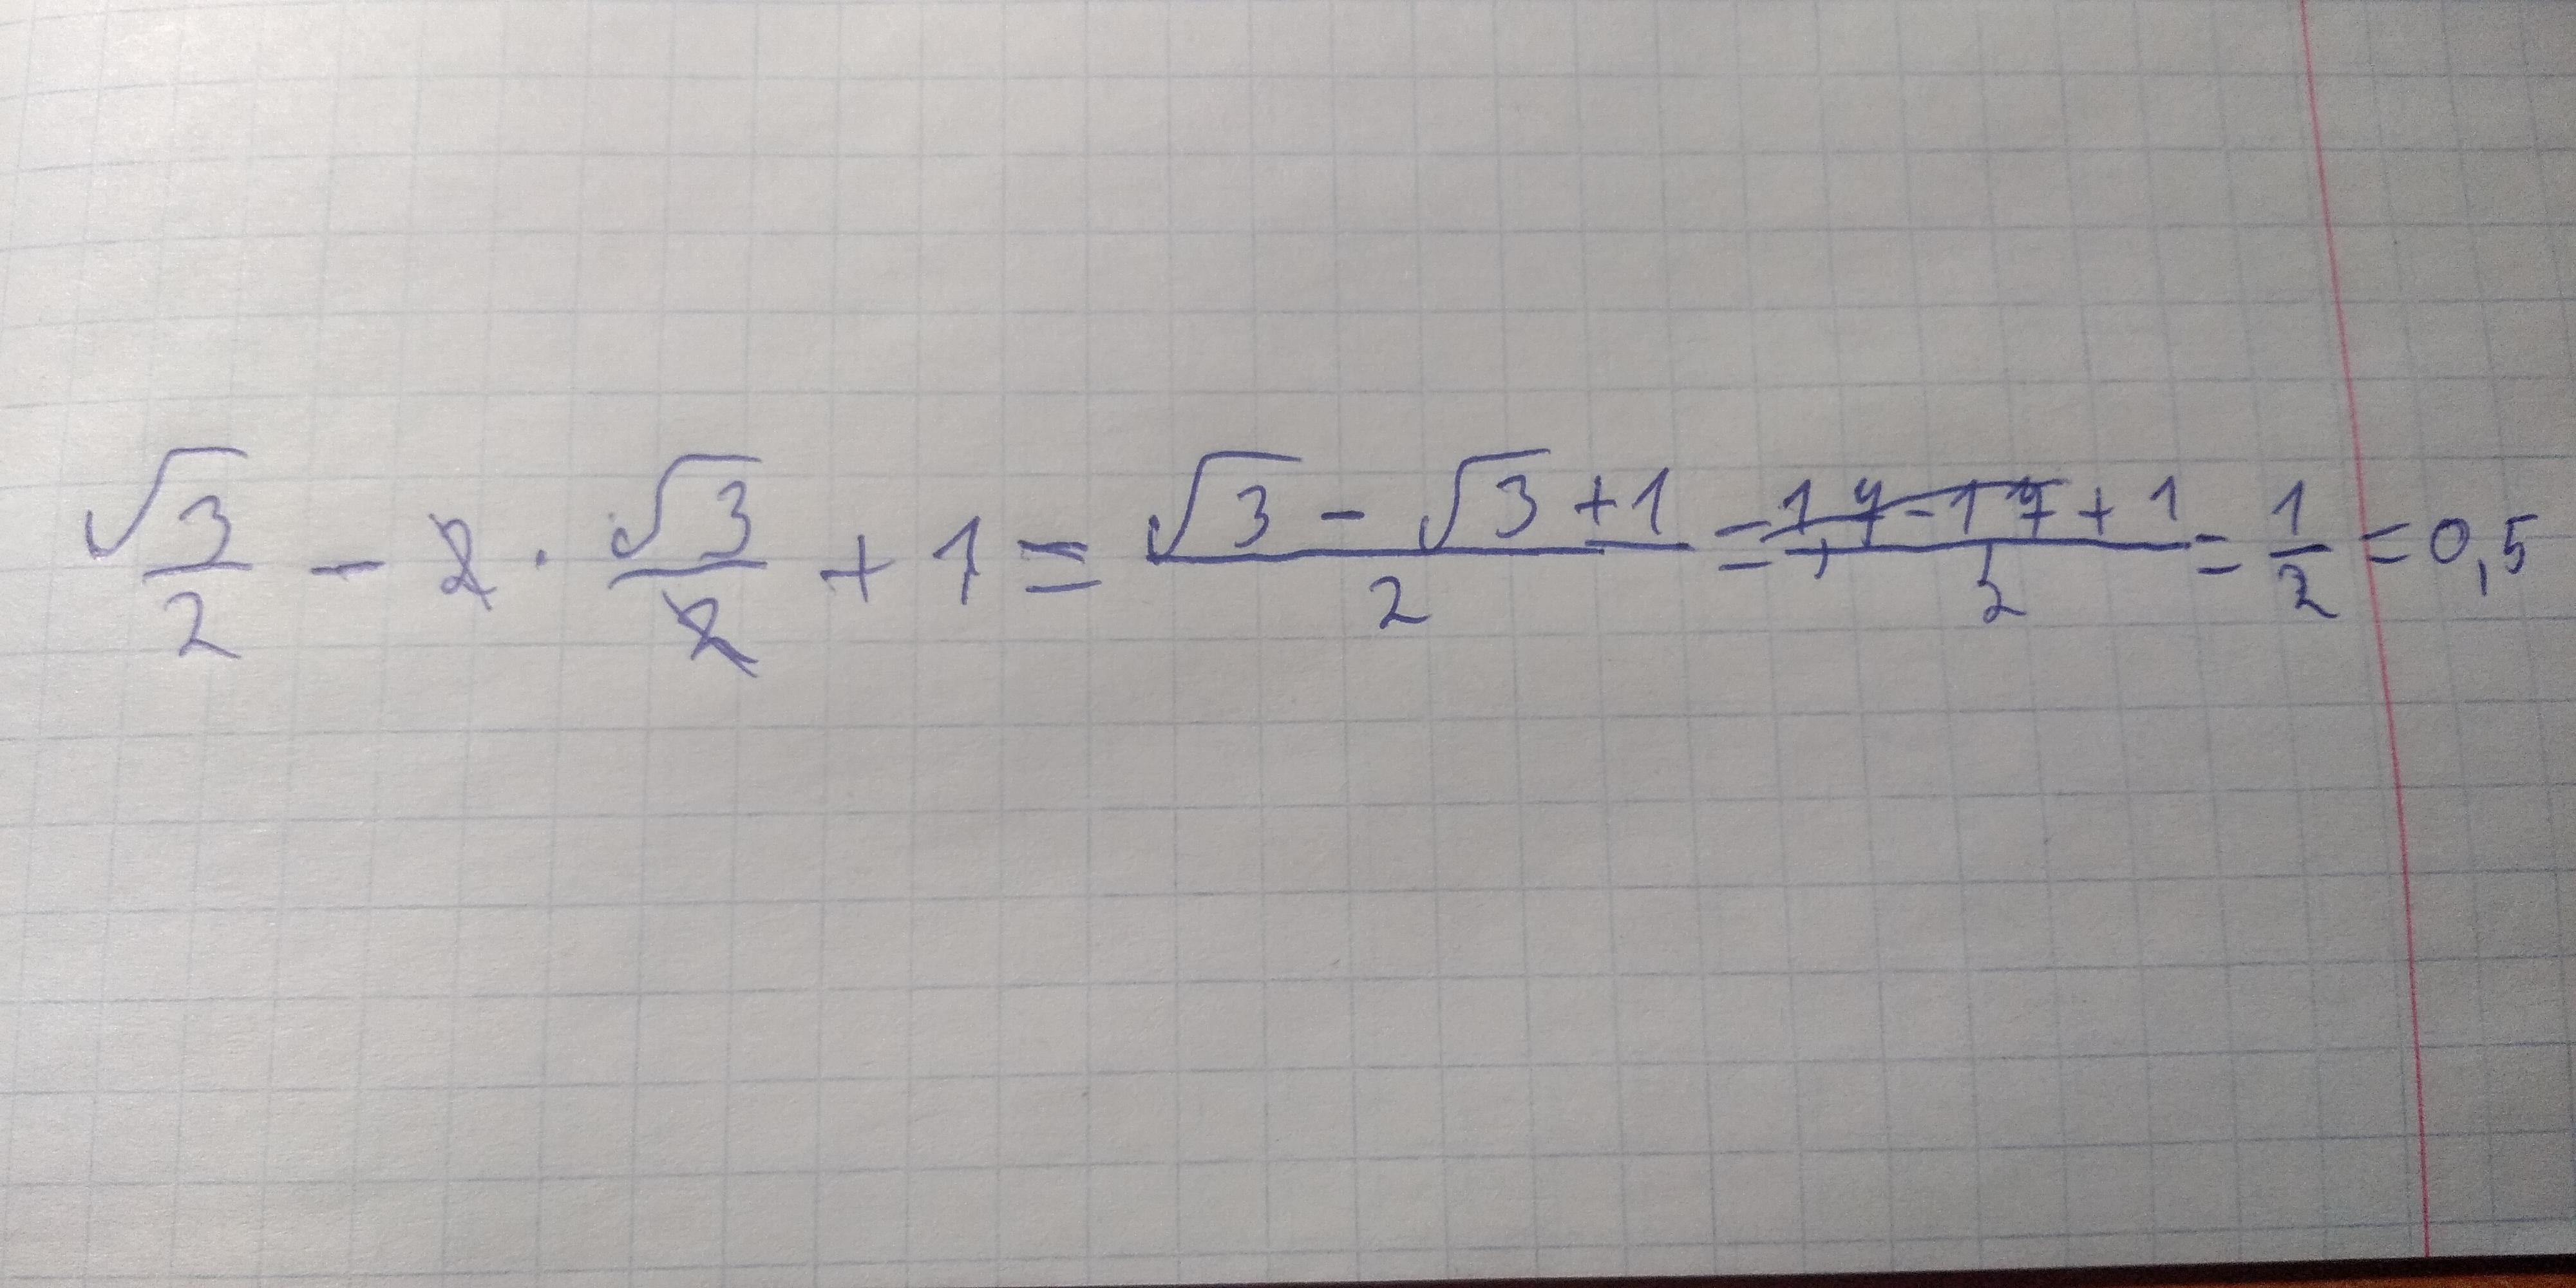 √3/2 - 2 · √3/2 + 1 = (√3 - √3 + 1)/2 = (1,7 - 1,7 + 1)/2 = 1/2 = 0,5